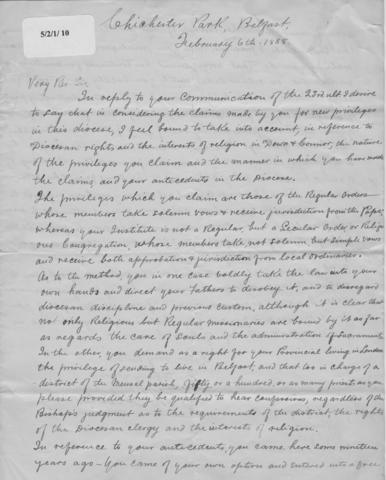 5/2/1/10
Chichester Park, Belfast,
February 6th. 1888
Very Rev Sir
In reply to your Communication of the 23rd ult I desire
to say that in considering the claims made by you for new privileges
in this diocese, I feel bound to take into account, in reference to
Diocesan rights and the interests of religion in Down & Connor, the nature
of the privileges you claim and the manner in which you have made
the claims, and your antecedents in the Diocese.
The privileges which you claim are those of the Regular Orders
whose members take solemn vows & receive jurisdiction from the Pope;
whereas your Institute is not a Regular, but a Secular Order, or Religi
ous Congregation, whose members take not solemn but simple vows
and receive both approbation & jurisdiction from local ordinaries.
As to the method, you in one case boldly take the law into your
own hands and direct your fathers to disobey it, and to disregard
diocesan discipline and previous custom, although it is clear that
no only Religious but Regular missionaries are bound by it as far
as regards the care of Souls and the administration of Sacraments
In the other, you demand as a right for your Provincial living in London
the privilege of sending to live in Belfast, and that too in charge of a
district of the parish, fifty or a hundred, or as many priests as you
please provided they be qualified to hear confessions, regardless of the
Bishop's judgment as to the requirements of the district, the rights
of the Diocesan clergy and the interests of religion.
In reference to your antecedents, you came here some nineteen
years ago - you came of your own option and entered into a free